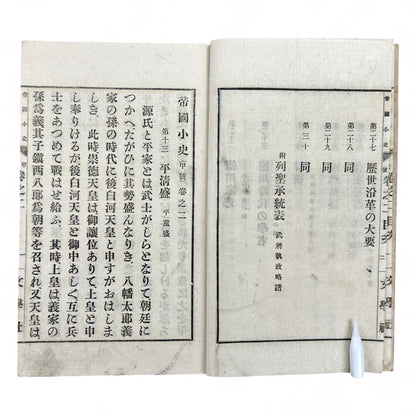 第二十七 歴世沿革の大要
第二十八 同
第二十九 同
第三十 同
附 列聖承統表 武府執政略譜
帝國小史 甲號 卷之二
第十三 平清盛 平重盛
源氏と平家とは武士がしらとなりて朝廷に
つかへたがひに其勢盛んなりき、八幡太郎義
家の孫の時代に後白河天皇と申すがおはしま
しき、此時崇徳天皇は御讓位ありて上皇と申
し奉りけるが後白河天皇と御中あしく互に兵
士をあつめて戰はせ給ふ、其時上皇は義家の
孫爲義其子鎭西八郎爲朝等を召され又天皇は
帝國小史
卷之二
一
文學社